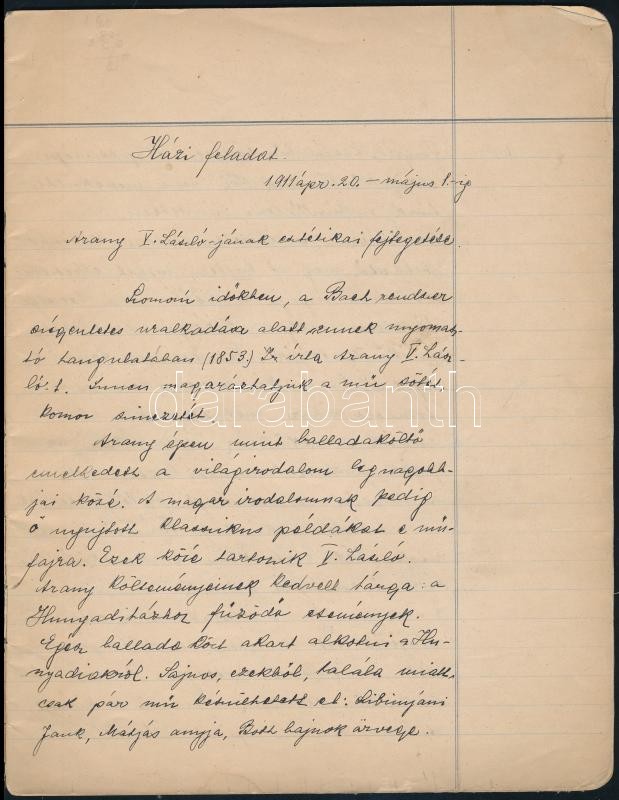 Házi feladat.
1911 ápr. 20. – május 1.-ig
Arany V. László-jának esztétikai fejtegetése.
Szomorú időkben, a Bach rendszer
szégyenletes uralkodása alatt s ennek nyomasz-
tó hangulatában (1853.) Ír írta Arany V. Lász-
ló-t. Innen magyarázhatjuk a mű sötét
komor színezetét.
Arany épen mint balladaköltő
emelkedett a világirodalom legnagobb-
jai közé. A magyar irodalomnak pedig
ő nyujtott klasszikus példákat e mű-
fajra. Ezek közé tartozik V. László.
Arany költeményeinek kedvelt tárga: a
Hunyadiházhoz fűződő események.
Egész ballada kört akart alkotni a Hu-
nyadiakról. Sajnos, ezekből, halála miatt
csak pár mű készülhetett el: Sibinjáni
Jank, Mátjás anyja, Both bajnok özvege.
darabanth